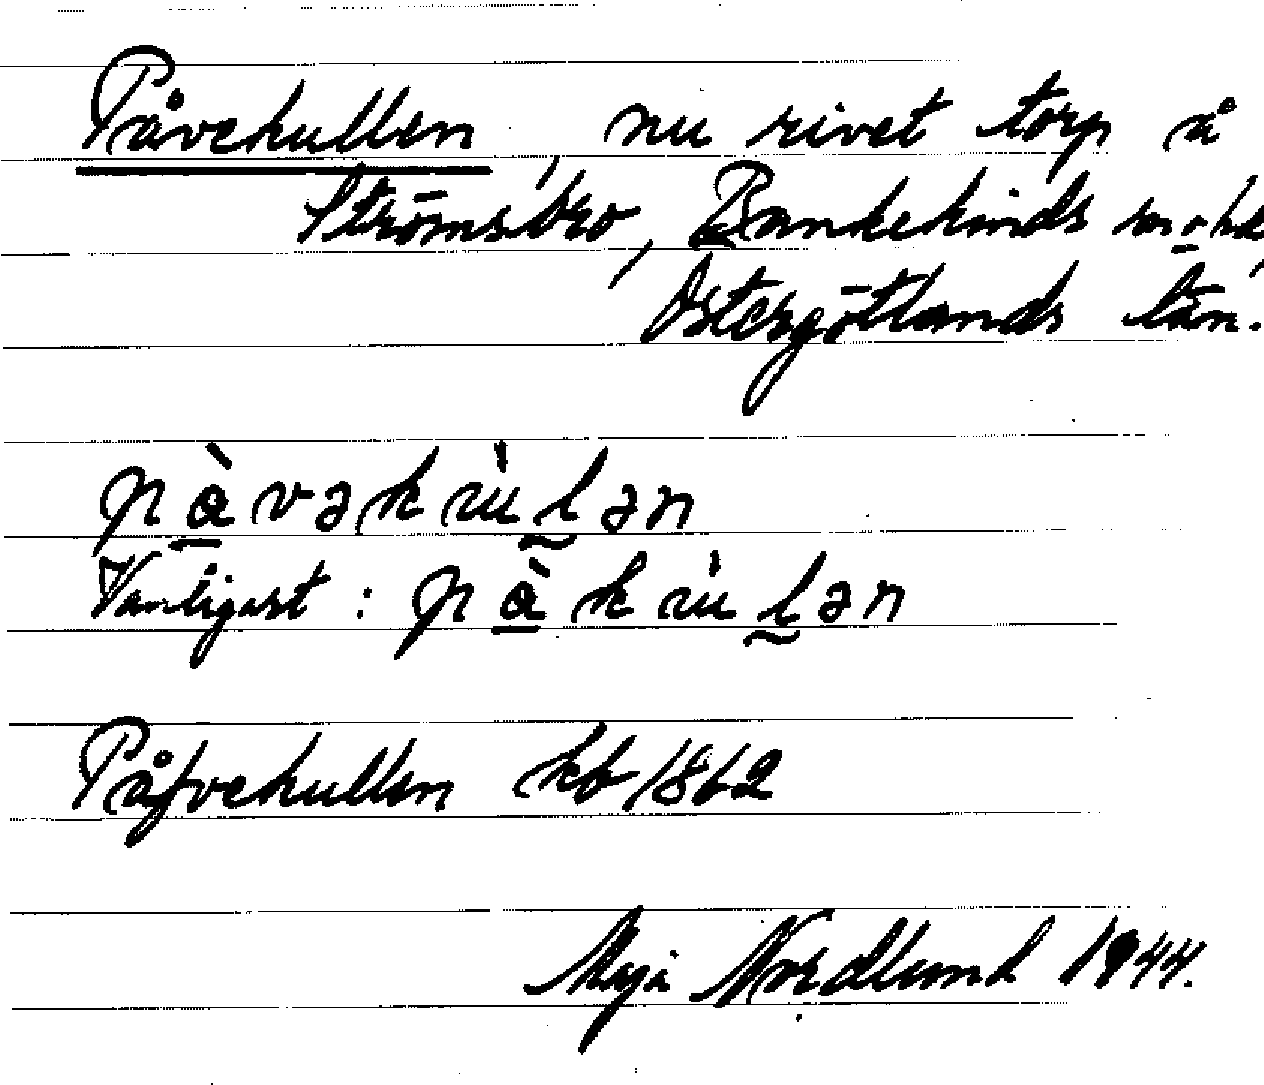 Påvekullen, nu rivet torp å
Strömsbro, Bankekinds sn o hd,
Östergötlands län.
pàvəkùlən
Vanligast: pàkùlən
Påfvekullen kb 1862
Maja Nordlund 1944.